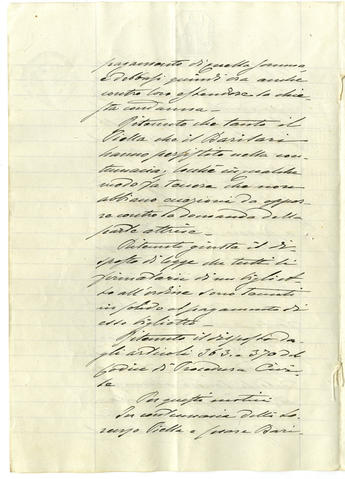 pagamento di quella somma
e debonsi quindi ora anche
contro loro estendere la chie-
sta condanna -
Ritenuto che tanto il
Piella che il Barilari
hanno persistito nella con-
tumacia, locchè in qualche
modo fa tenere che non
abbiano eccezioni da oppor-
re contro la domanda della
parte attrice -
Ritenuto giusta il di-
sposto di legge che tutti li
firmatarii di un bigliet-
to all'ordine sono tenuti
in solido al pagamento di
esso biglietto -
Ritenuto il disposto da-
gli articoli 363 e 370 del
Codice di Procedura Civi-
le
Per questi motivi
In contumacia delli Lo-
renzo Piella e Cesare Bari-